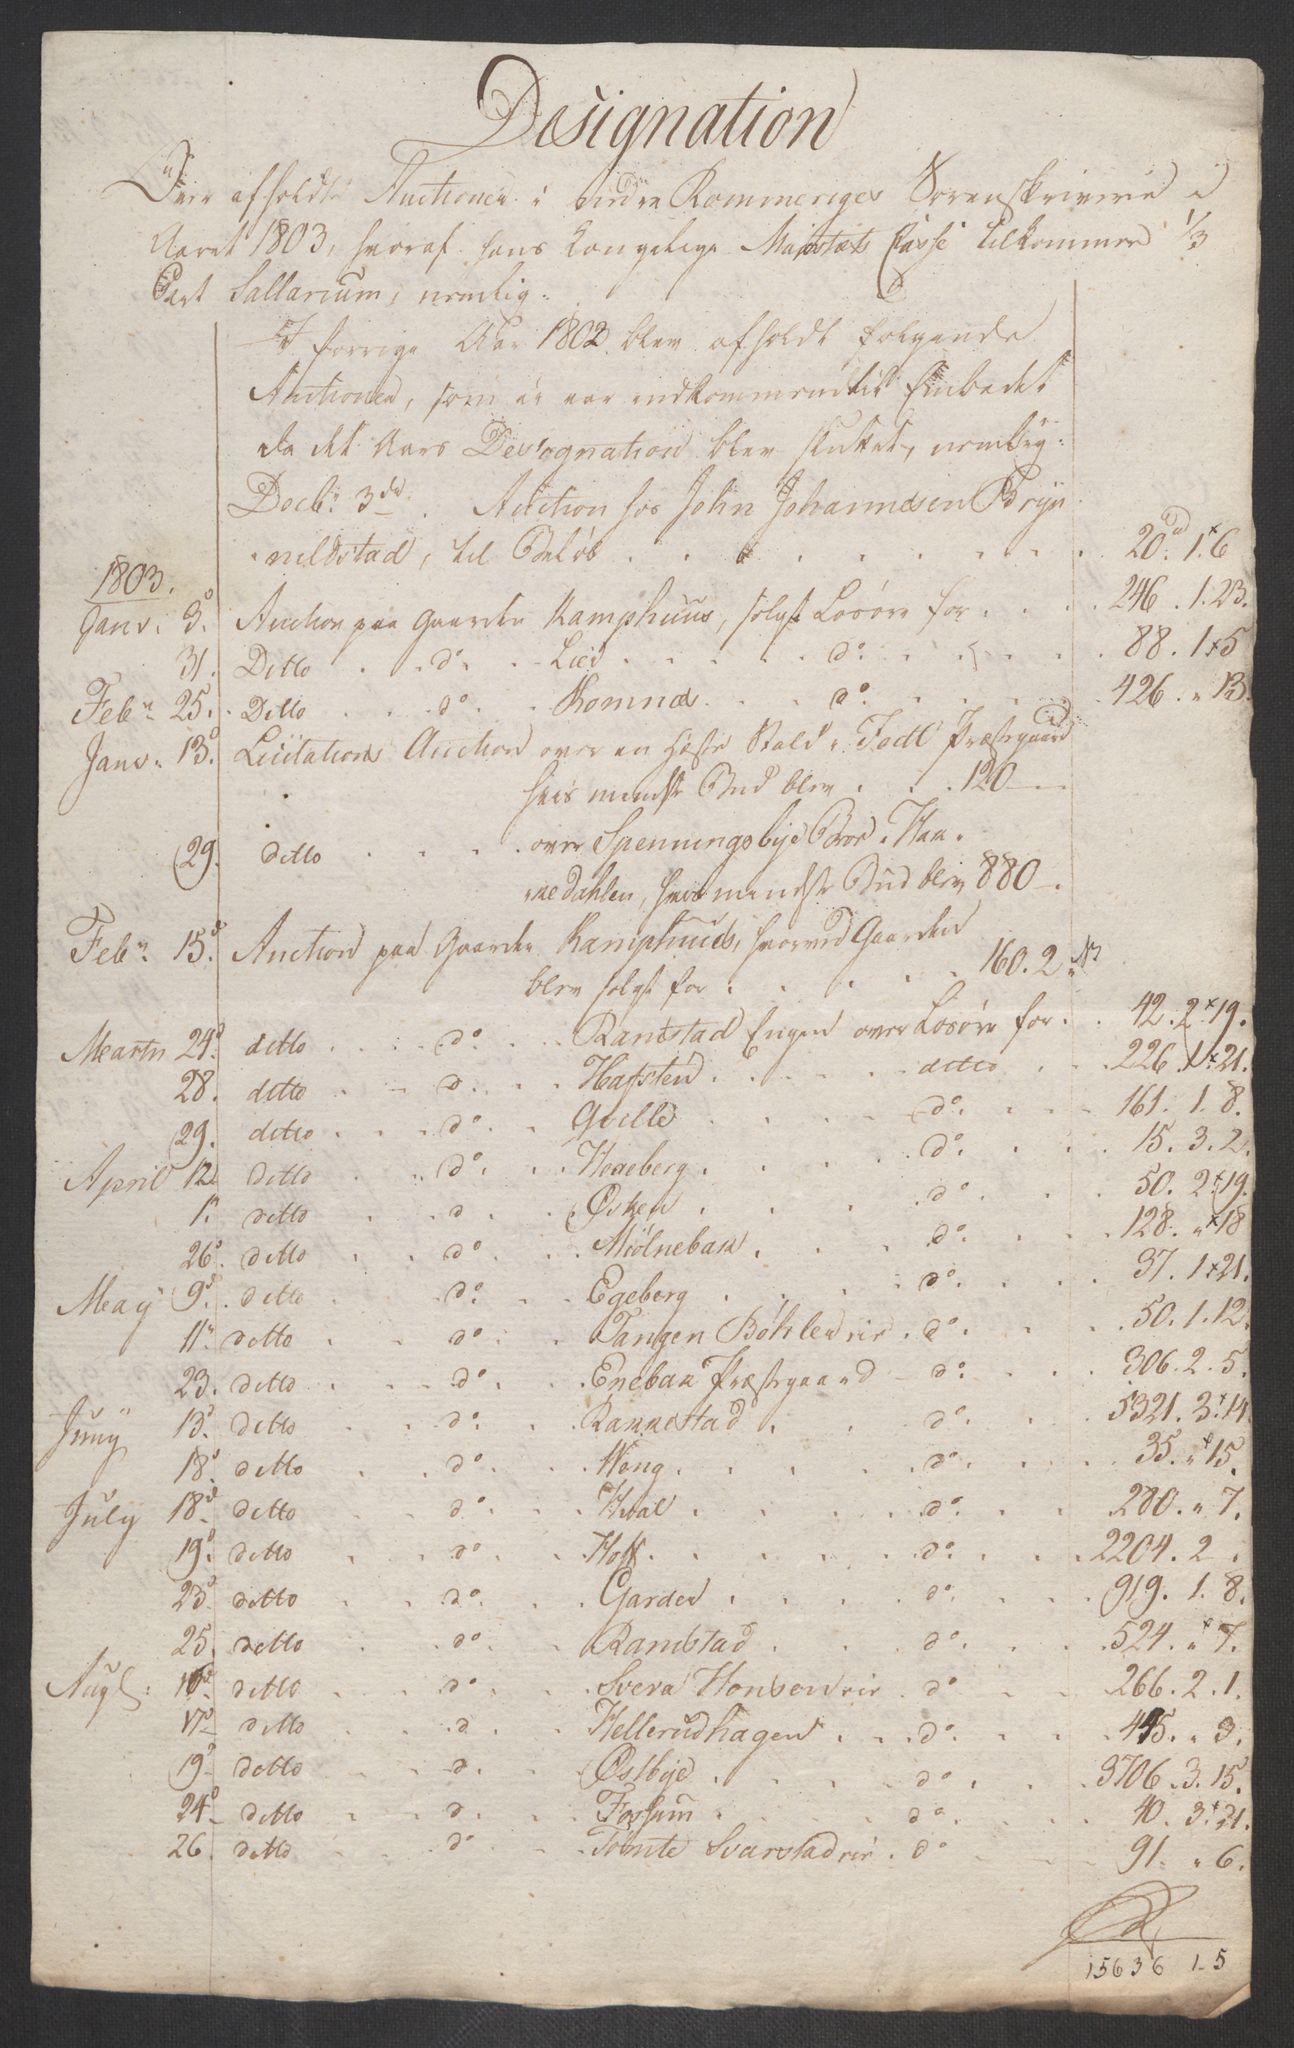 Designation
Over afholdte Auctioner i Nedre Rommeriges Sorenskriverie i
Aaret 1803, hvoraf hans Kongelige Majestæts Casse tilkommer 1/3
Part Sallarium, nemlig:
I forrige Aar 1802 blev afholdt følgende
Auctioner, som ei var indkommen til Embedet
da det Aars Designation blev sluttet, nemlig:
Decbr 3die. Auction hos John Johannesen Bryn
nildstad, til Beløb . . . 20rd 1. 6
1803.
Janv. 3d. Auction paa Gaarden Kamphuus, solgt Losøre for . . . 246. 1. 23.
31. Ditto . . do . . Lied . . . do . . . 88. 1. 5
Febr. 25. Ditto . . do . . Komnæs . . . do . . . 426. " 13.
Janv. 13d. Licitations Auction over en Heste Stald i Fedt Præstegaard
hvis mindste Bud blev . . . 120 —
29. ditto . . . over Spenningsbye Broe i Haa-
nedahlen, hvis mindste Bud blev 880 —.
Febr. 15d. Auction paa Gaarden Kamphuus, hvorved Gaarden
blev solgt for . . . 160. 2.
Martii 24d ditto . . . do . . Ramstad Engen over Losøre for . . 42. 2. 19.
28. ditto . . d. . . Hafsten . . . ditto . . 226. 1. 21.
29. ditto . . . do . . Qville . . . do . . . 161. 1. 8.
April 12. ditto . . do . . Hegeberg . . . do . . . 15. 3. 2.
1. ditto . . d . . Østen . . . do . . . 50. 2. 19.
26d. ditto . . do . . Mølnebak . . . do . . . 128. " 18
May 9d. ditto . . do . . Egeberg . . . do . . . 37. 1. 21.
11. ditto . . do . . Tangen Böhler eie . do . . . 50. 1. 12.
23. ditto . . do . . Enebak Præstegaard do . . . 306. 2. 5.
Juny 13d ditto . . do . . Rannestad . . do . . . 5321. 3. 14
18d. ditto . . do . . Weng . . . do . . . 35. " 15.
July 18d. ditto . . do . . Hval . . . do . . . 280. " 7.
19d. ditto . . do . . Hoff . . . do . . . 2204. 2 .
23d ditto . . do . . Garder . . . do . . . 919. 1. 8.
25. ditto . . do . . Ramstad . . . do . . . 524. " 7.
Augt: 16d. ditto . . do . . Svera Honsen eie . do . . 266. 2. 1.
17d ditto . . d . . Hellerudhagen . . do . . 445. " 3.
19d ditto . . d. . . Østbye . . . do . . . 3706. 3. 15.
24d ditto . . d. . . Fossum . . . do . . . 40. 3. 21.
26. ditto . . do . . Tomte Svarstad eie . do . . . 91. " 6.
15636 1 - 5